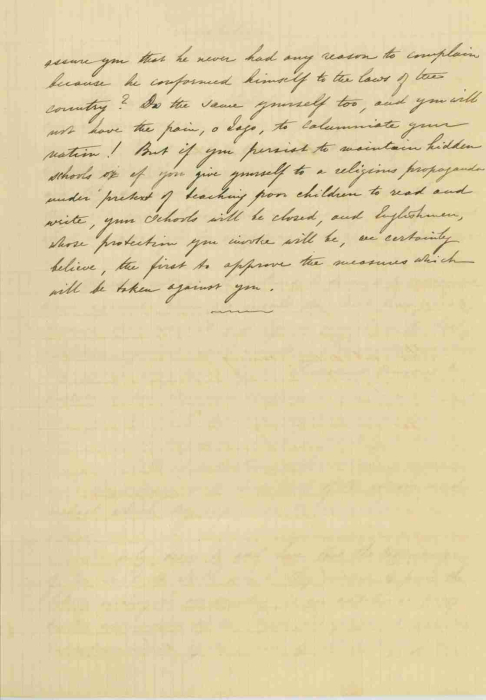 assure you that he never had any reason to complain
because he conformed himself to the laws of the
country? Do the same yourself too, and you will
not have the pain, o Iago, to calumniate your
nation! But if you persist to maintain hidden
schools if you give yourself to a religious propaganda
under pretext of teaching poor children to read and
write, your Schools will be closed, and Englishmen,
whose protection you invoke will be, we certainly
believe, the first to approve the measures which
will be taken against you.